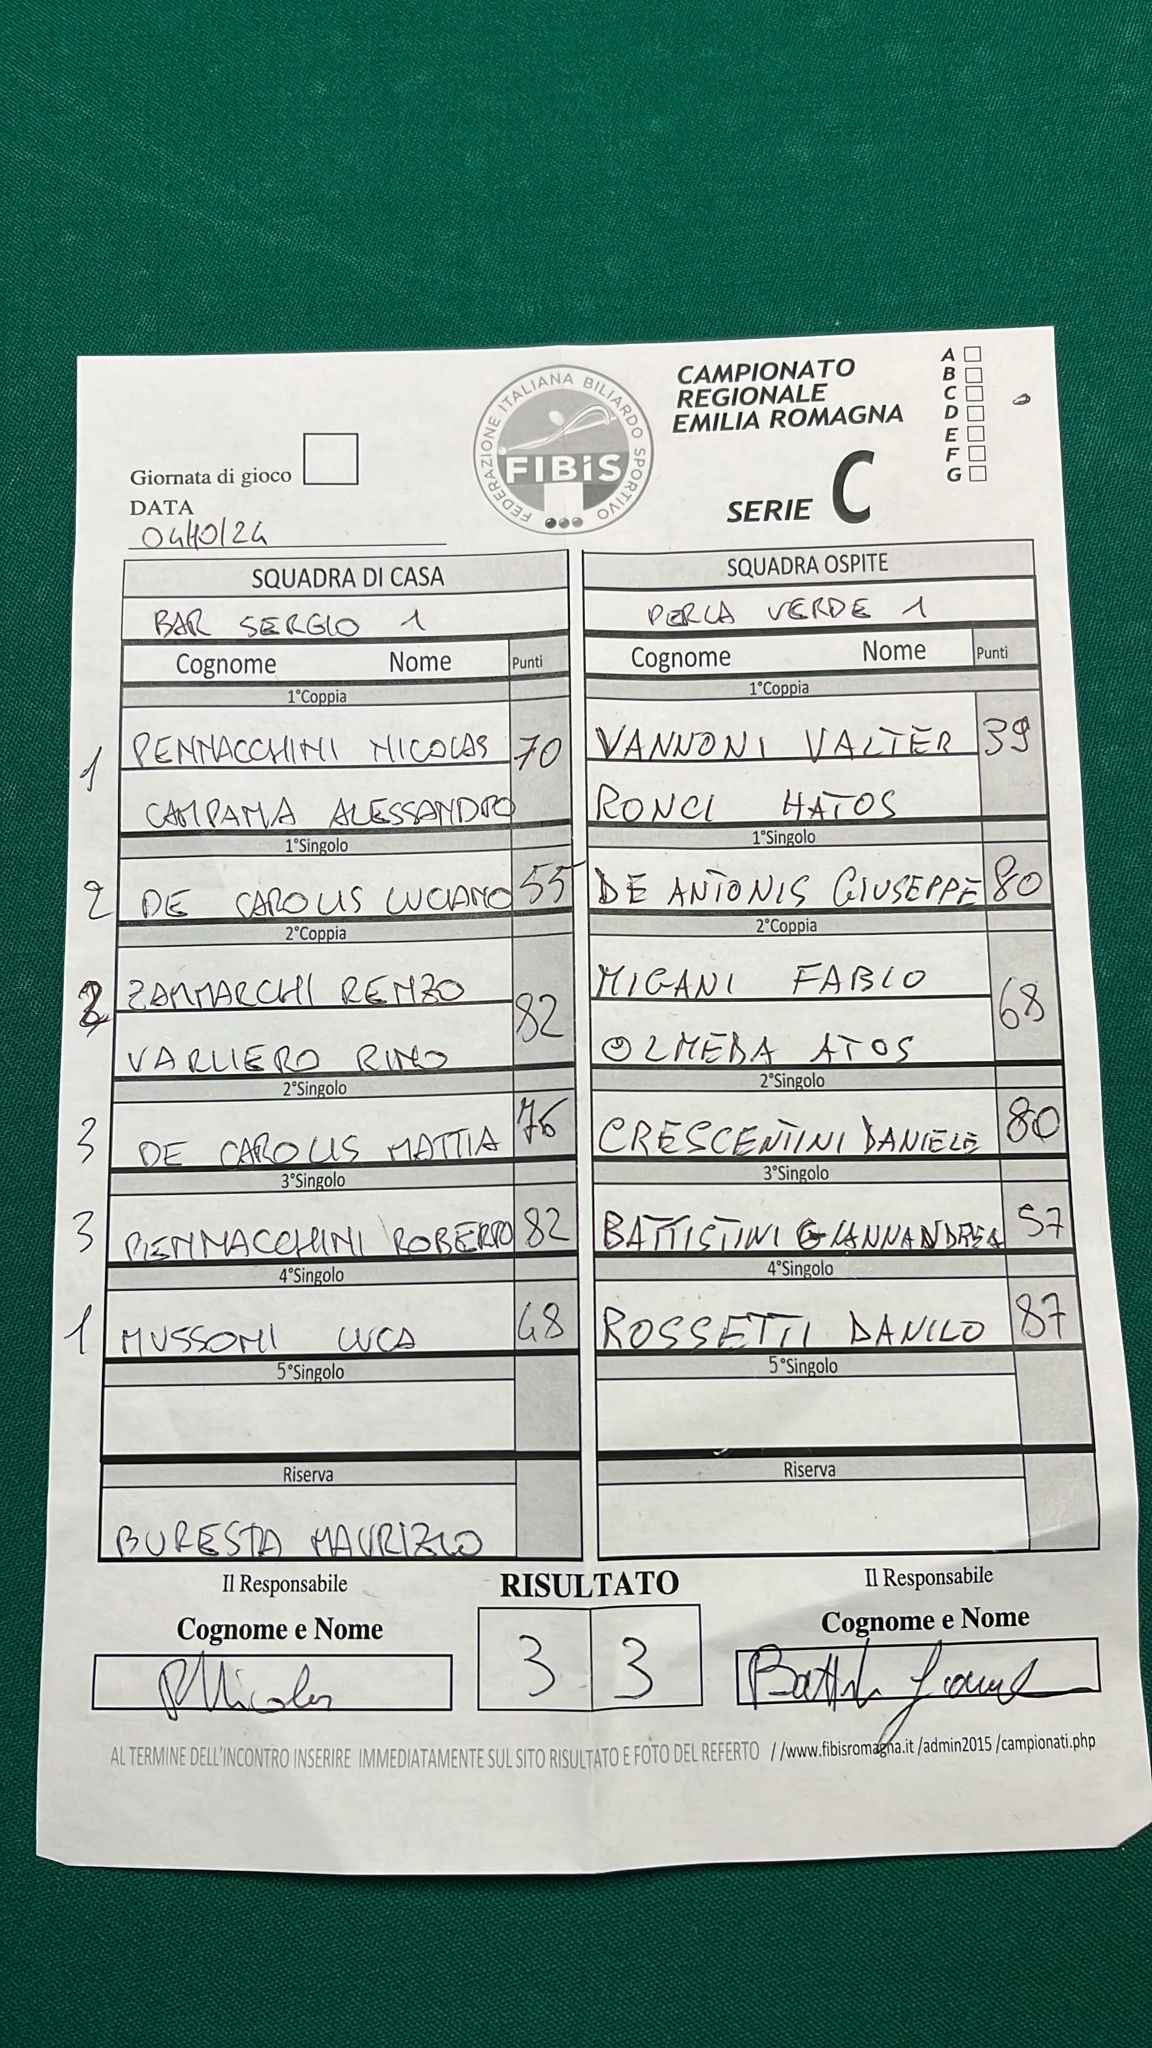 FEDERAZIONE ITALIANA BILIARDO SPORTIVO
FIBiS
CAMPIONATO
REGIONALE
EMILIA ROMAGNA
SERIE C
A
B
C
D
E
F
G
Giornata di gioco
DATA
04/10/24
SQUADRA DI CASA
BAR SERGIO 1
Cognome Nome Punti
1°Coppia
1 PENNACCHINI NICOLAS 70
CAMPANA ALESSANDRO
1°Singolo
2 DE CAROLIS LUCIANO 55
2°Coppia
2 ZAMMARCHI RENZO 82
VARLIERO RINO
2°Singolo
3 DE CAROLIS MATTIA 76
3°Singolo
3 PENNACCHINI ROBERTO 82
4°Singolo
1 MUSSONI LUCA 48
5°Singolo
Riserva
BURESTA MAURIZIO
SQUADRA OSPITE
PERLA VERDE 1
Cognome Nome Punti
1°Coppia
VANNONI VALTER 39
RONCI HATOS
1°Singolo
DE ANTONIS GIUSEPPE 80
2°Coppia
MIGANI FABIO 68
OLMEDA ATOS
2°Singolo
CRESCENTINI DANIELE 80
3°Singolo
BATTISTINI GIANNANDREA 57
4°Singolo
ROSSETTI DANILO 87
5°Singolo
Riserva
Il Responsabile
Cognome e Nome
RISULTATO
3 3
Il Responsabile
Cognome e Nome
AL TERMINE DELL'INCONTRO INSERIRE IMMEDIATAMENTE SUL SITO RISULTATO E FOTO DEL REFERTO //www.fibisromagna.it /admin2015 /campionati.php